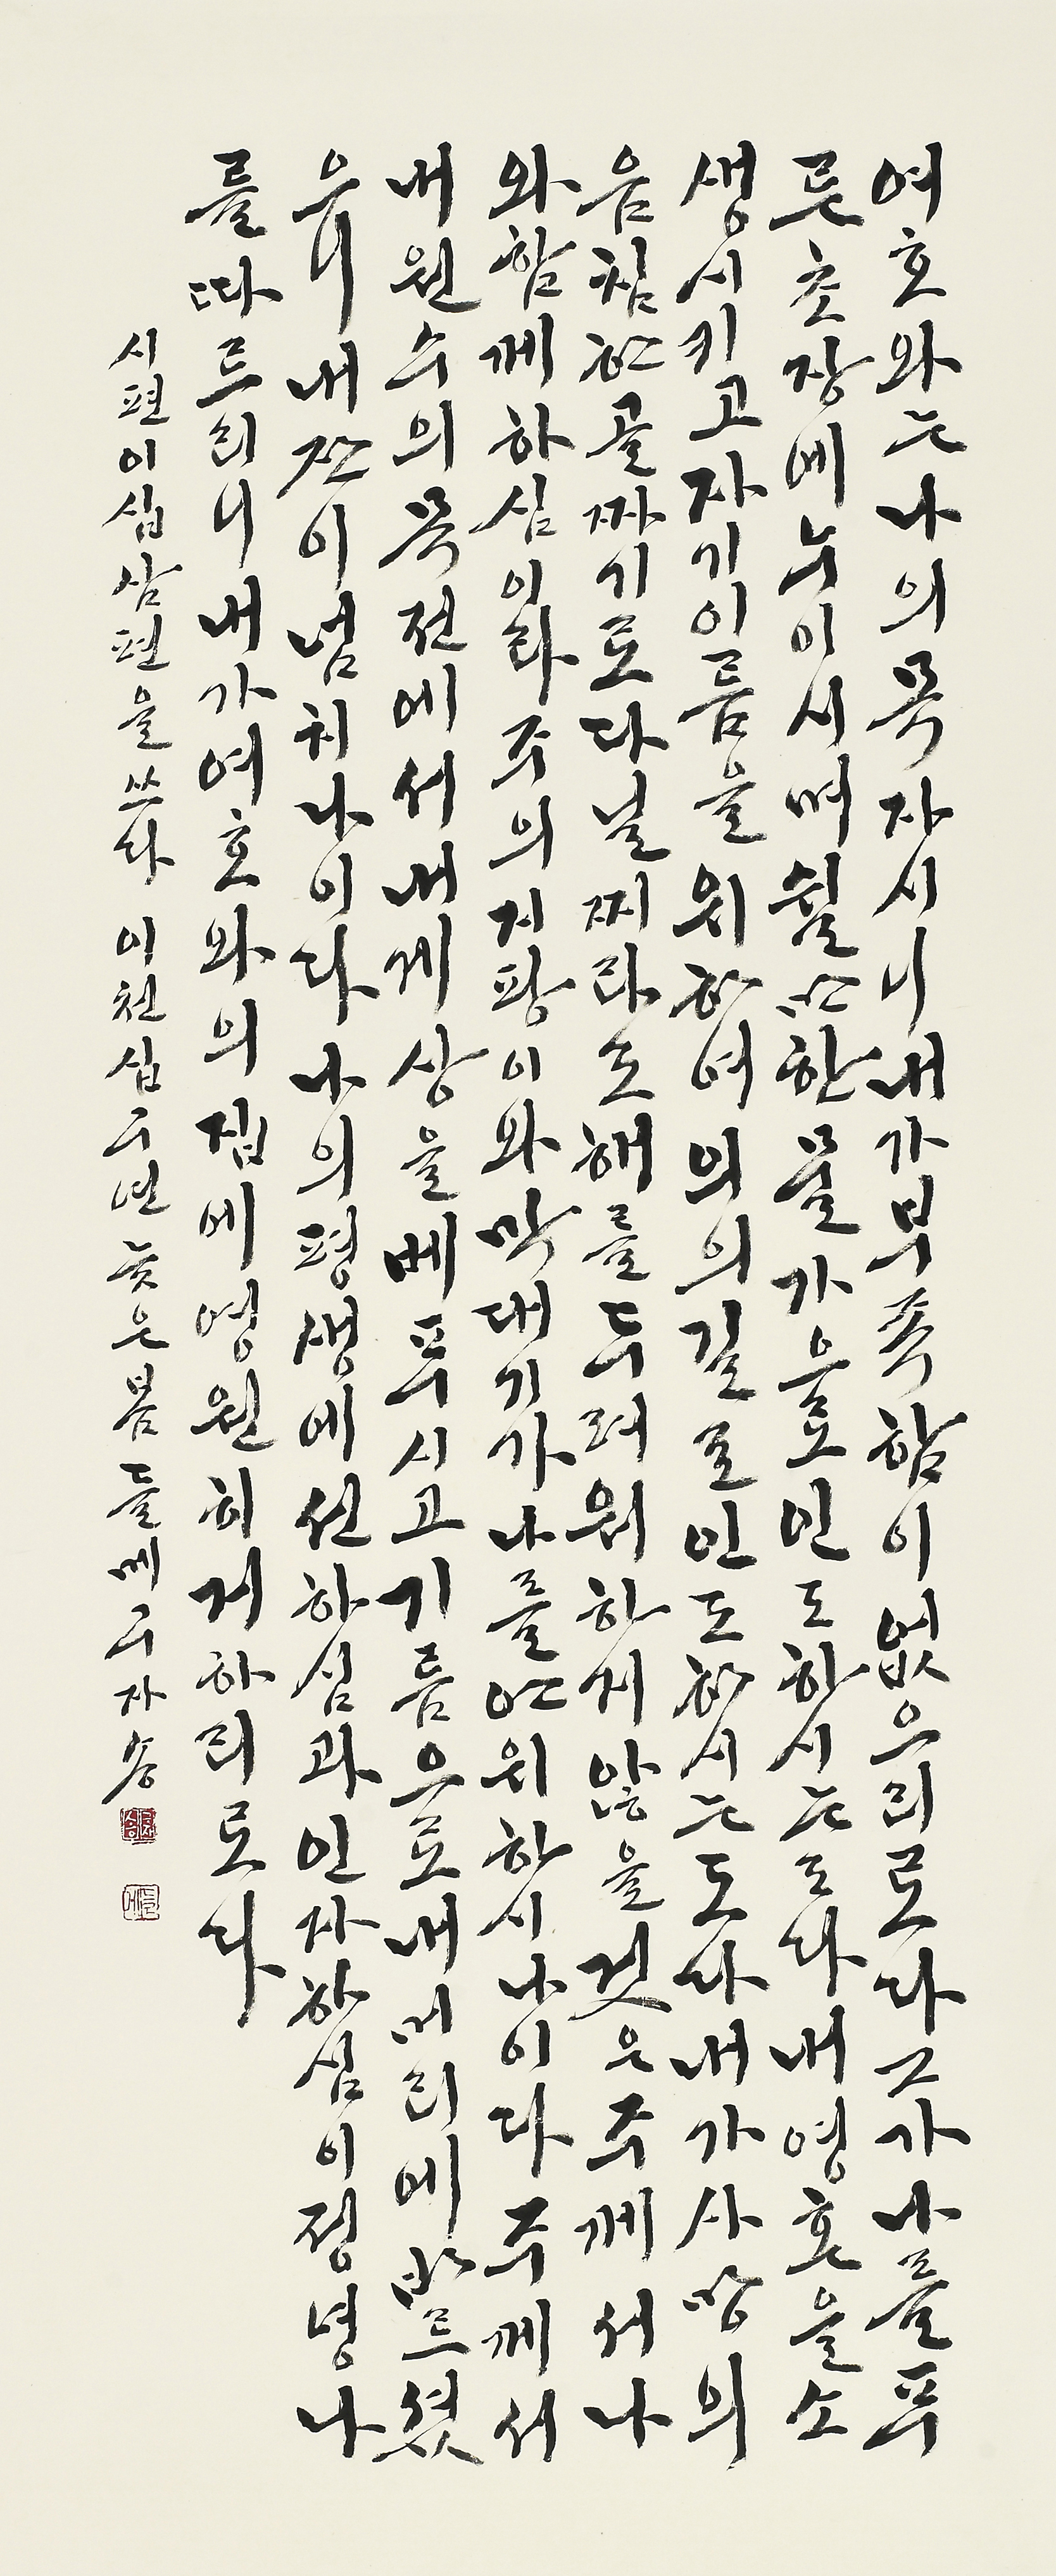 여호와는나의목자시니내가부족함이없으리로다그가나를푸
른초장에누이시며쉴만한물가으로인도하시는도다내영혼을소
생시키고자기이름을위하여의의길로인도하시는도다내가사망의
음침한골짜기로다닐찌라도해를두려워하지않을것은주께서나
와함께하심이라주의지팡이와막대기가나를안위하시나이다주께서
내원수의목전에서내게상을베푸시고기름으로내머리에바르셨
으니내잔이넘치나이다나의평생에선하심과인자하심이정녕나
를따르리니내가여호와의집에영원히거하리로다
시편이십삼편을쓰다 이천십구년 늦은봄 들메구자송